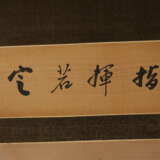 指揮若定